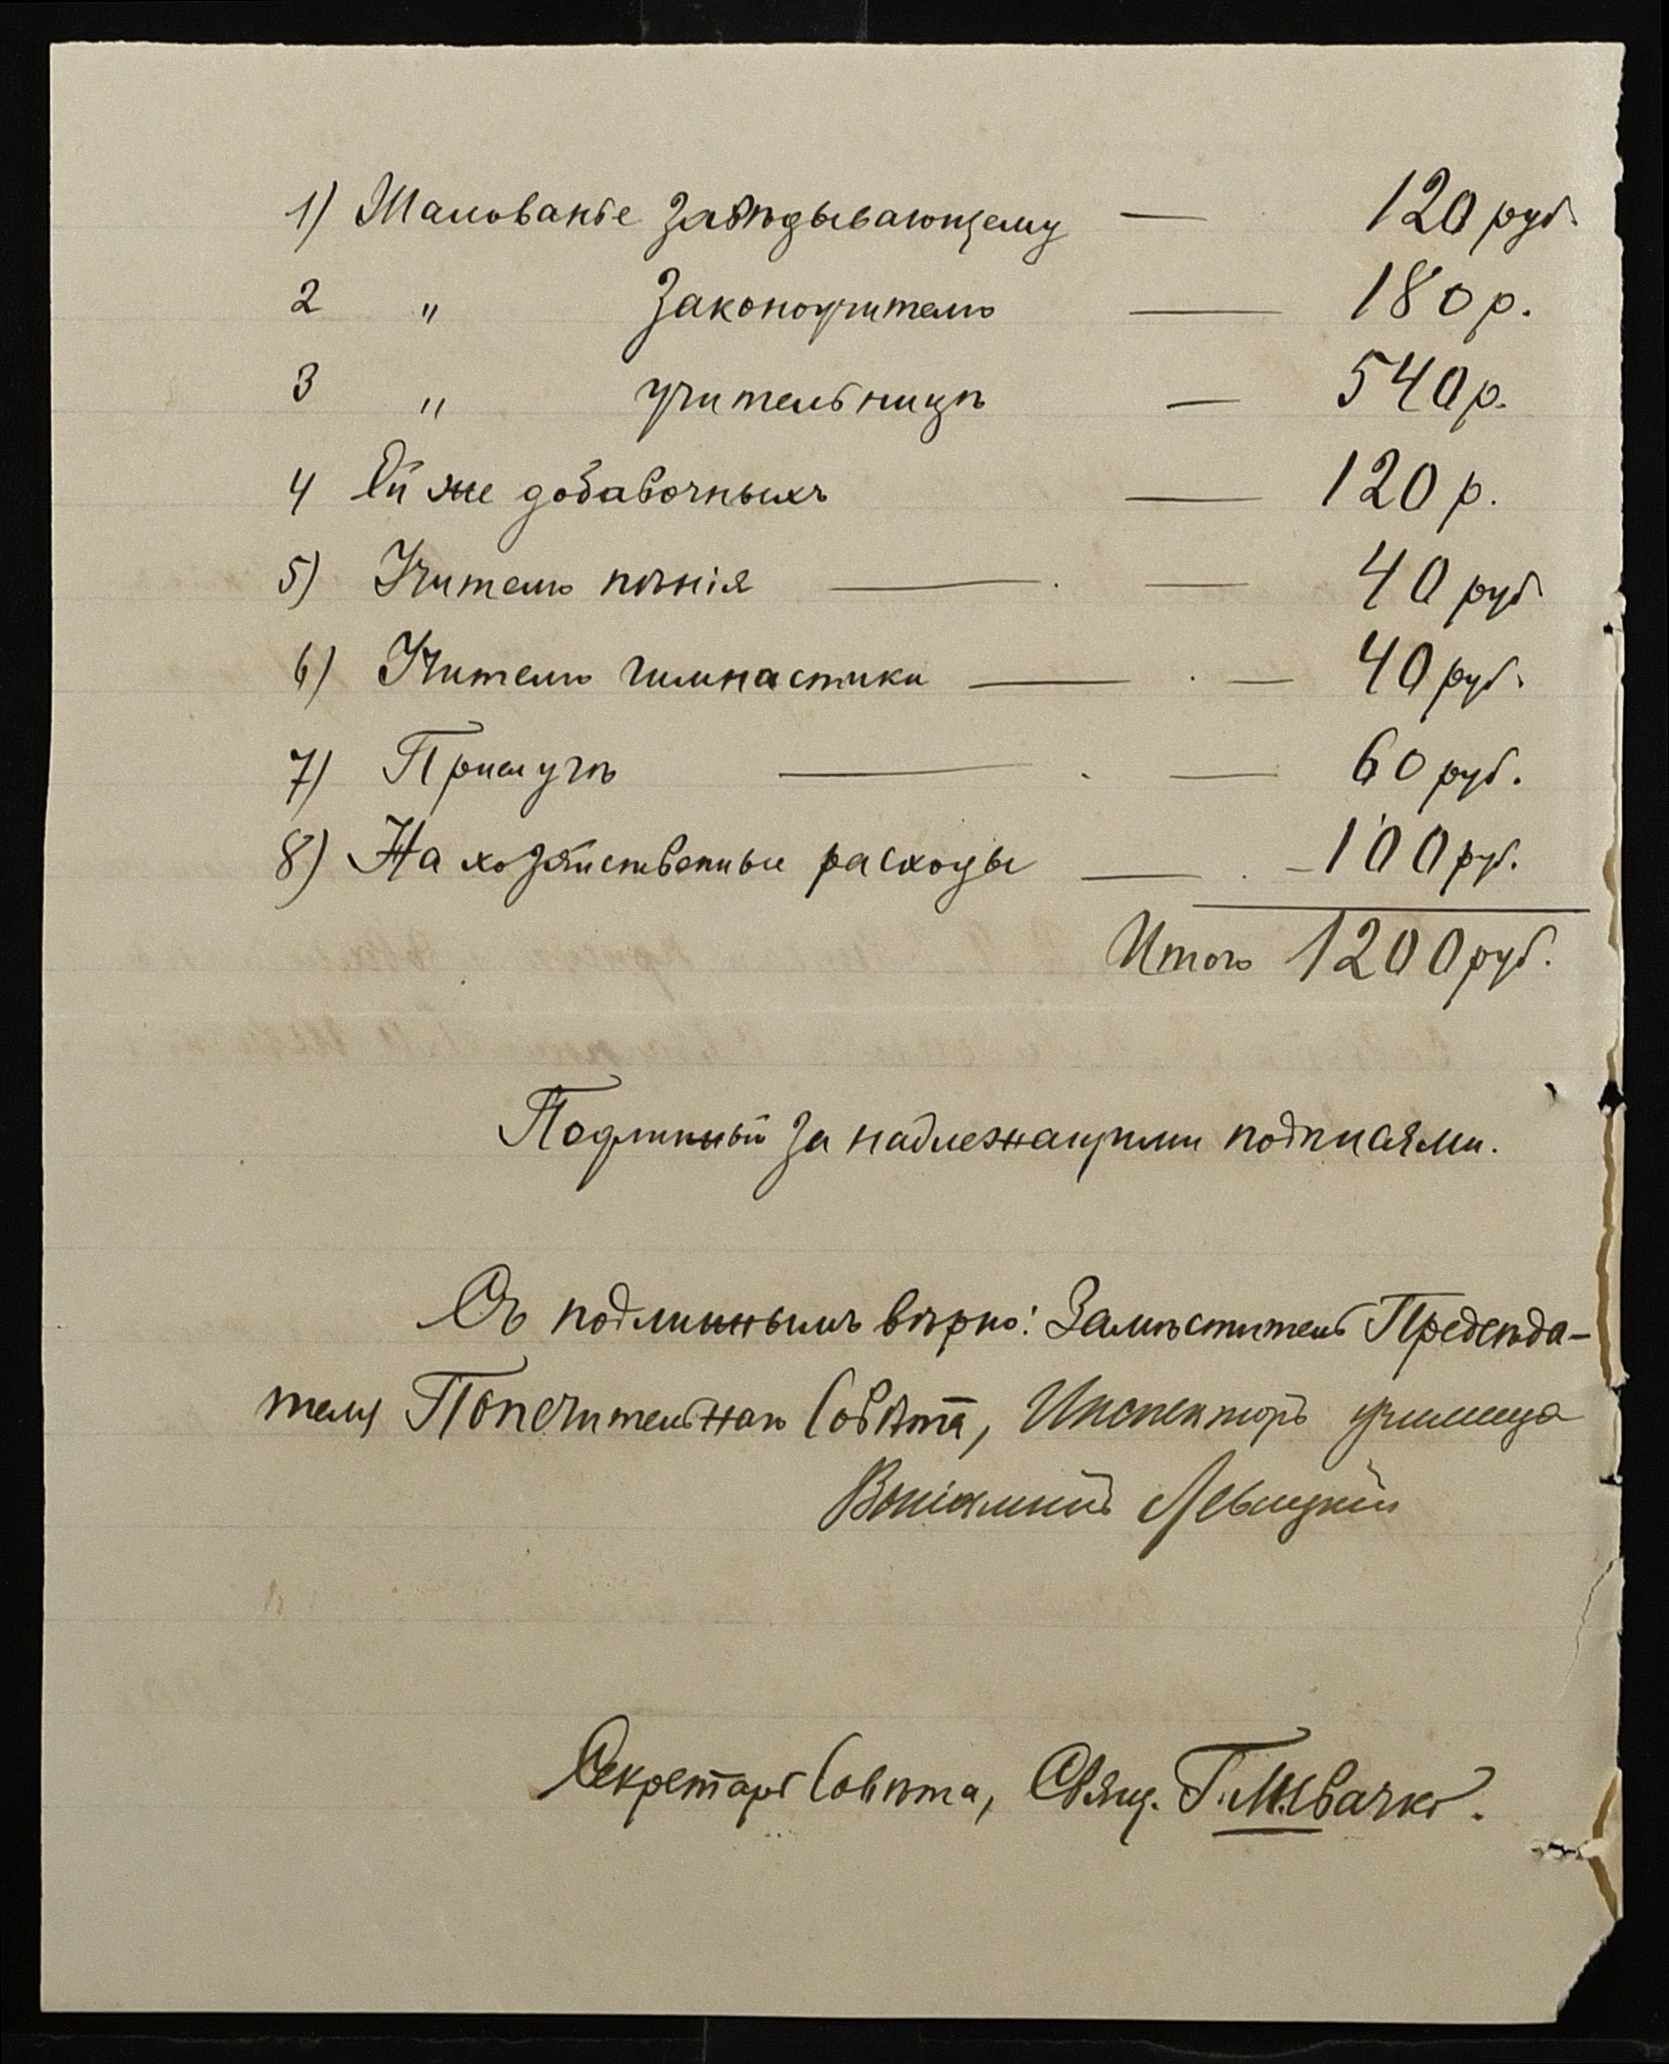 1) Жалованье Завѣдывающему — 120 руб.
2 " Законоучителю — 180 р.
3 " учительницѣ — 540 р.
4 Ей же добавочныхъ — 120 р.
5) Учителю пѣнія — . — 40 руб
6) Учителю гимнастики — . — 40 руб.
7) Прислугѣ — . — 60 руб.
8) На хозяйственные расходы — . – 100 руб.
Итого 1200 руб.
Подлинный за надлежащими подписями.
Съ подлиннымъ вѣрно: Замѣститель Предсѣда-
теля Попечительнаго Совѣта, Инспекторъ училища
Веніаминъ Левицкій
Секретарь Совѣта, Свящ. Г.